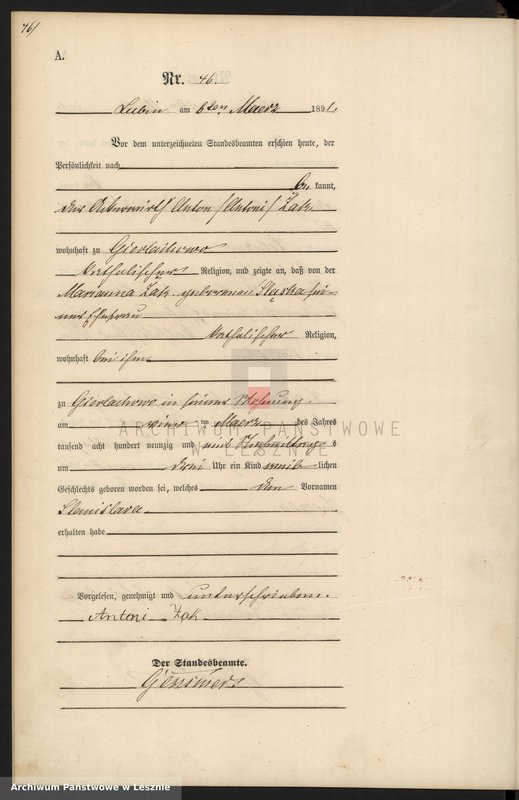 46/
A.
Nr. 46.
Lubin am 6ten Maerz 1891.
Vor dem unterzeichneten Standesbeamten erschien heute, der
Persönlichkeit nach
be kannt,
der Ackerwirth Anton /Antoni/ Żak
wohnhaft zu Gierlachowo
katholischer Religion, und zeigte an, daß von der
Marianna Żak geborenen Śląska sei-
ner Ehefrau
katholischer Religion,
wohnhaft bei ihm
zu Gierlachowo in seiner Wohnung
am ten Maerz des Jahres
tausend acht hundert neunzig und eins Nachmittags
um drei Uhr ein Kind weib lichen
Geschlechts geboren worden sei, welches den Vornamen
Stanislava
erhalten habe
Vorgelesen, genehmigt und unterschrieben.
Antoni Żak
Der Standesbeamte.
ARCHIWUM PAŃSTWOWE
W LESZNIE
Archiwum Państwowe w Lesznie